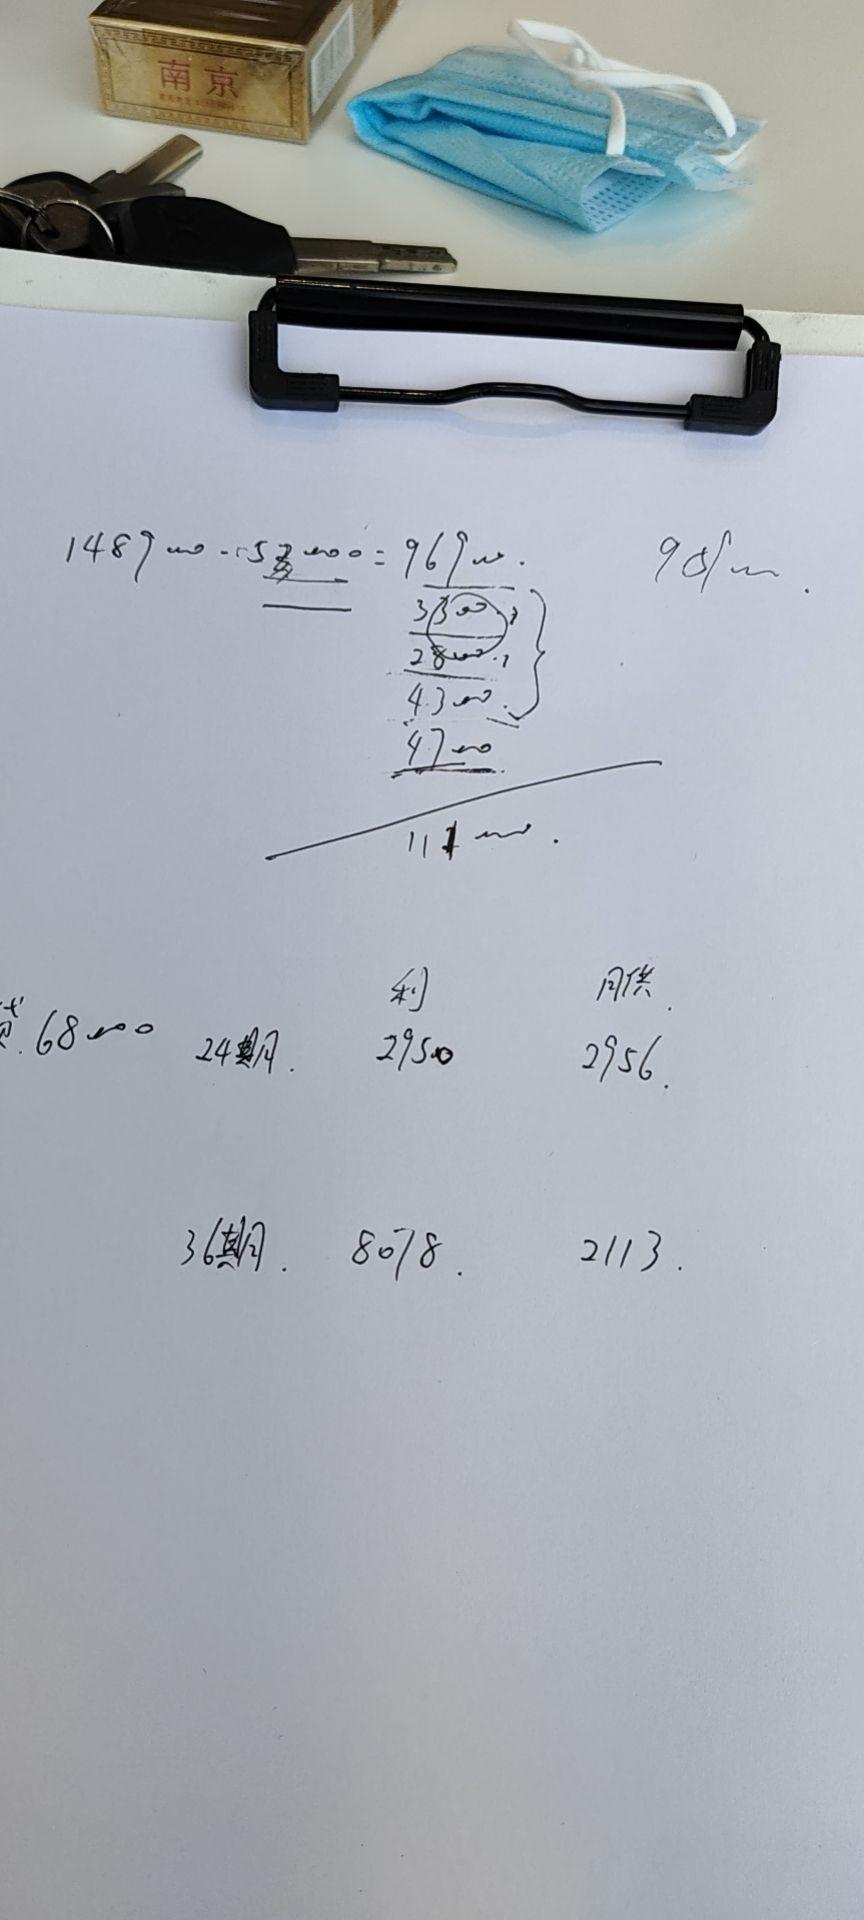 南京
148900-52000=96900. 98800.
3300
2800
4300.
4700
111000.
利 月供.
贷.68000 24期. 2950 2956.
36期. 8078. 2113.